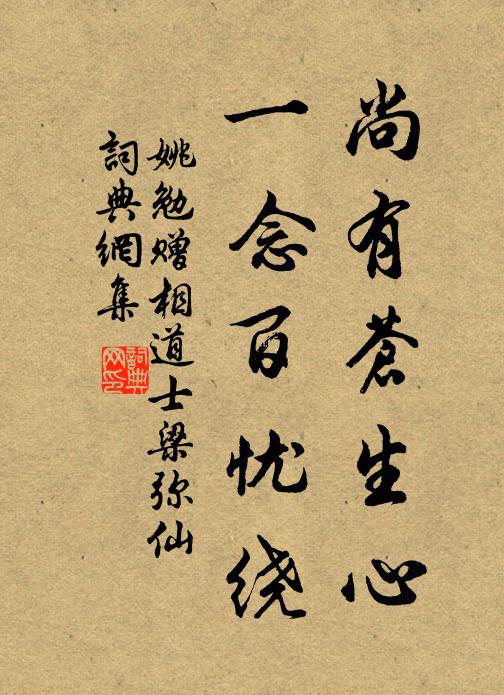 尚有蒼生心
一念百忧绕
姚勉赠相道士梁弥仙
詞典網集
詞典网印